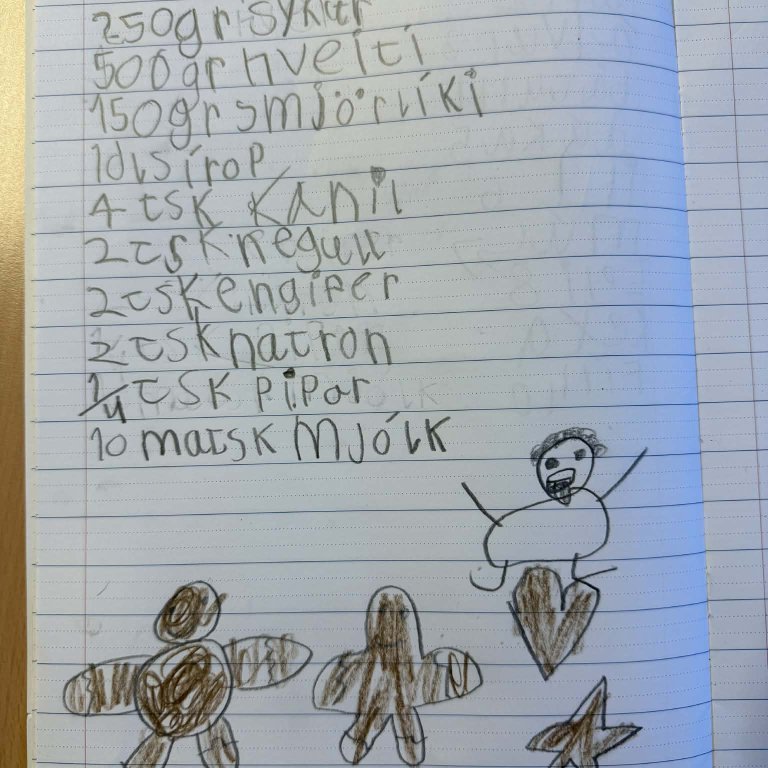 250gr sykur
500gr hveiti
150gr smjörlíki
1dl sírop
4 tsk kanil
2 tsk negull
2 tsk engifer
2 tsk natron
1/4 tsk pipar
10 matsk mjólk